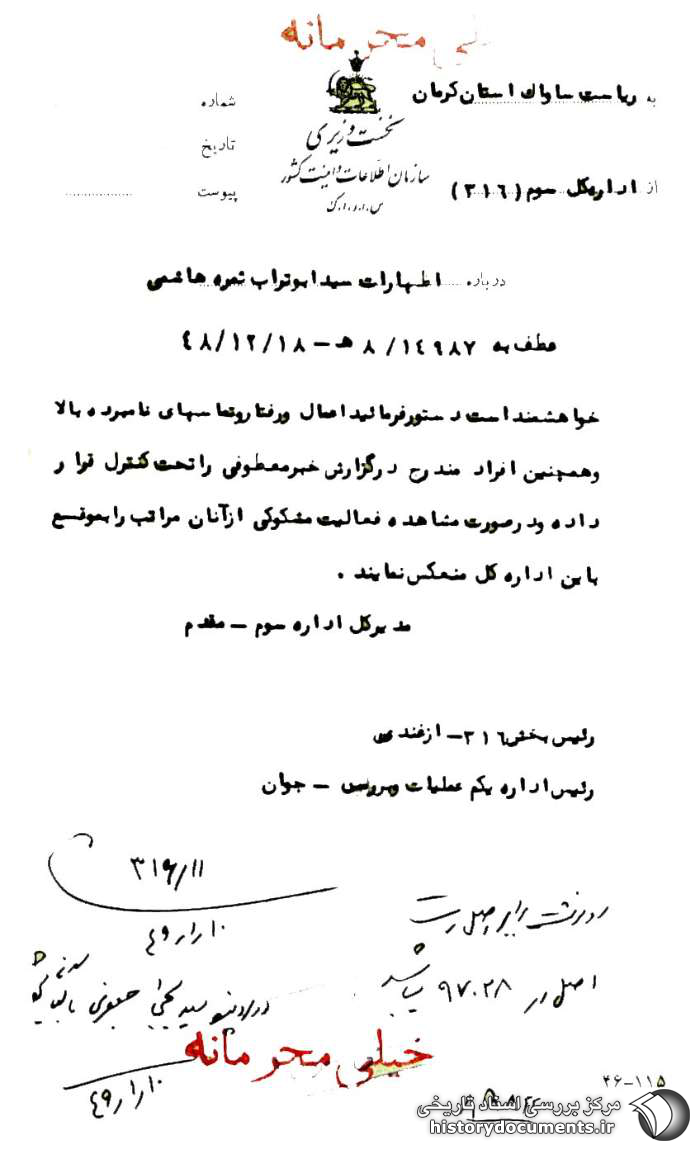 خیلی محرمانه
به ریاست ساواک استان کرمان
شماره
نخست وزیری
تاریخ
سازمان اطلاعات و امنیت کشور
از اداره کل سوم (۳۱۶)
پیوست
س.ا.و.ا.ک
درباره اظهارات سیدابوتراب ثمره هاشمی
عطف به ۱۴۹۸۷/ ۸ هـ – ۴۸/۱۲/۱۸
خواهشمند است دستور فرمائید اعمال ورفتاروتماسهای نامبرده بالا
وهمچنین افراد مندرج درگزارش خبرمعطوفی راتحت کنترل قرار
داده ودرصورت مشاهده فعالیت مشکوکی ازآنان مراتب رابموقع
باین اداره کل منعکس نمایند .
مدیرکل اداره سوم – مقدم
رئیس بخش ۳۱۶ – ازغندی
رئیس اداره یکم عملیات وبررسی – جوان
۳۱۶/۱۱
رونوشت برابر اصل است
۱۰/۱/۴۹
اصل در ۹۷۰۲۸ میباشد
در پرونده سید یحیی جعفری
خیلی محرمانه
۱۰/۱/۴۹
۴۶-۱۱۵
مرکز بررسی اسناد تاریخی
historydocuments.ir